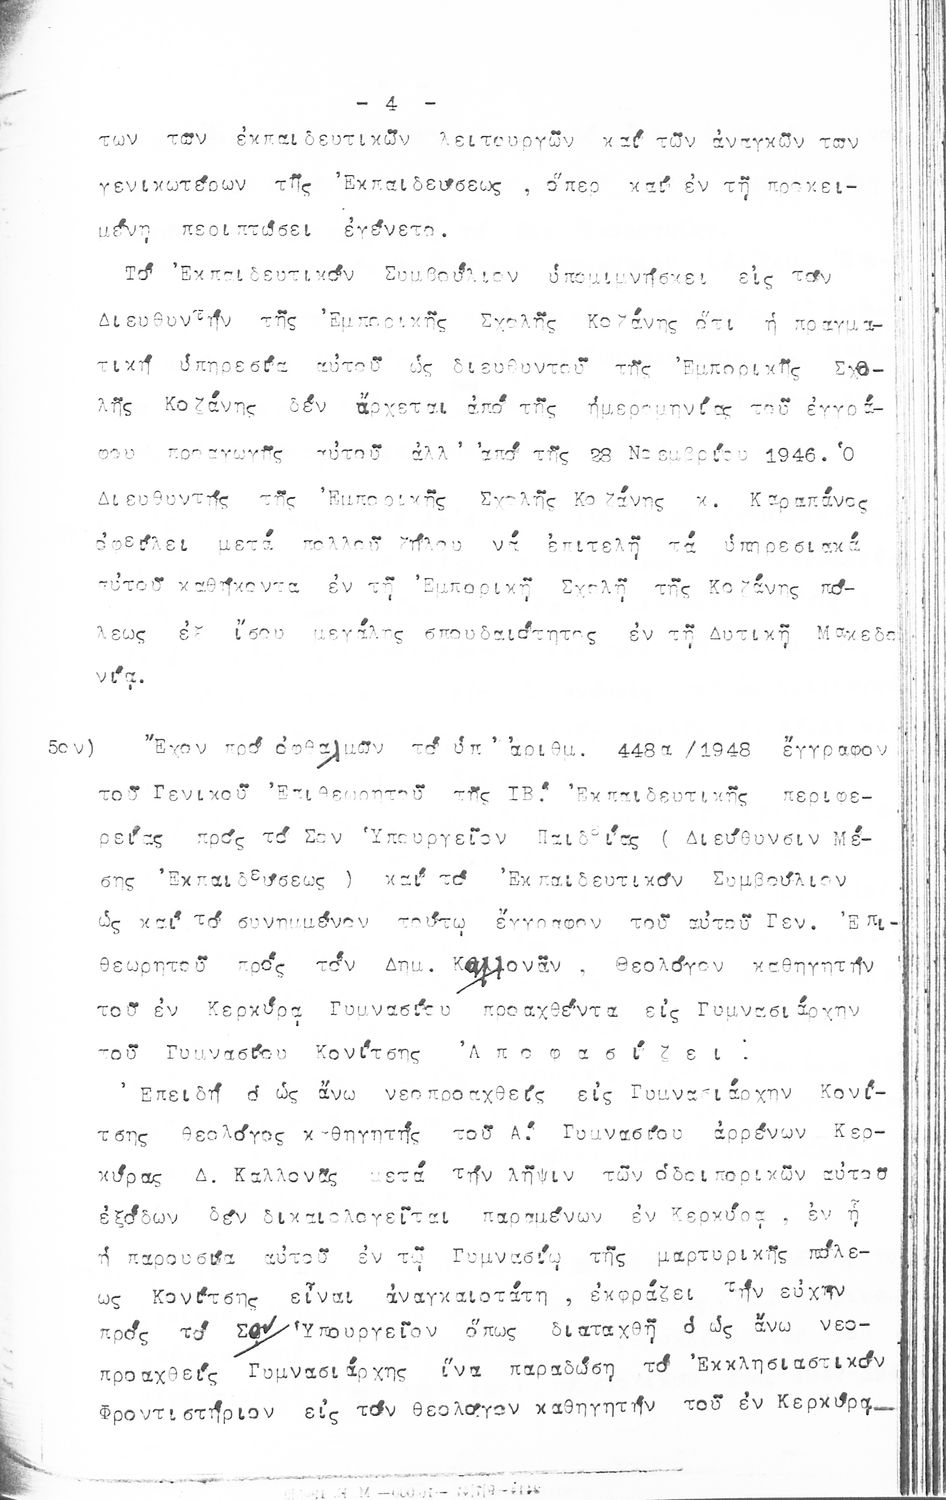 - 4 -
των των ἐκπαιδευτικῶν λειτουργῶν καί τῶν ἀναγκῶν των
γενικωτέρων τῆς Ἐκπαιδεύσεως , ὅπερ καί ἐν τῇ προκει-
μένῃ περιπτώσει ἐγένετο.
Τό Ἐκπαιδευτικόν Συμβούλιον ὑπομιμνήσκει εἰς τόν
Διευθυντήν τῆς Ἐμπορικῆς Σχολῆς Κοζάνης ὅτι ἡ πραγμα-
τική ὑπηρεσία αὐτοῦ ὡς διευθυντοῦ τῆς Ἐμπορικῆς Σχο-
λῆς Κοζάνης δέν ἄρχεται ἀπό τῆς ἡμερομηνίας τοῦ ἐγγρά-
φου προαγωγῆς αὐτοῦ ἀλλ' ἀπό τῆς 28 Νοεμβρίου 1946. Ὁ
Διευθυντής τῆς Ἐμπορικῆς Σχολῆς Κοζάνης κ. Καραπάνος
ὀφείλει μετά πολλοῦ ζήλου νά ἐπιτελῇ τά ὑπηρεσιακά
αὐτοῦ καθήκοντα ἐν τῇ Ἐμπορικῇ Σχολῇ τῆς Κοζάνης πό-
λεως ἐξ ἴσου μεγάλης σπουδαιότητος ἐν τῇ Δυτικῇ Μακεδο
νίᾳ.
5ον) Ἔχον πρό ὀφθαλμῶν τό ὑπ' ἀριθμ. 448α /1948 ἔγγραφον
τοῦ Γενικοῦ Ἐπιθεωρητοῦ τῆς ΙΒ! Ἐκπαιδευτικῆς περιφε-
ρείας πρός τό Σον Ὑπουργεῖον Παιδείας ( Διεύθυνσιν Μέ-
σης Ἐκπαιδεύσεως ) καί τό Ἐκπαιδευτικόν Συμβούλιον
ὡς καί τό συνημμένον τούτῳ ἔγγραφον τοῦ αὐτοῦ Γεν. Ἐπι-
θεωρητοῦ πρός τόν Δημ. Καλλονᾶν , θεολόγον καθηγητήν
τοῦ ἐν Κερκύρᾳ Γυμνασίου προαχθέντα εἰς Γυμνασιάρχην
τοῦ Γυμνασίου Κονίτσης Ἀ π ο φ α σ ί ζ ε ι :
Ἐπειδή ὁ ὡς ἄνω νεοπροαχθείς εἰς Γυμνασιάρχην Κονί-
τσης θεολόγος καθηγητής τοῦ Α! Γυμνασίου ἀρρένων Κερ-
κύρας Δ. Καλλονᾶς μετά τήν λῆψιν τῶν ὁδοιπορικῶν αὐτοῦ
ἐξόδων δέν δικαιολογεῖται παραμένων ἐν Κερκύρᾳ , ἐν ᾗ
ἡ παρουσία αὐτοῦ ἐν τῷ Γυμνασίῳ τῆς μαρτυρικῆς πόλε-
ως Κονίτσης εἶναι ἀναγκαιοτάτη , ἐκφράζει τήν εὐχήν
πρός τό Σον Ὑπουργεῖον ὅπως διαταχθῇ ὁ ὡς ἄνω νεο-
προαχθείς Γυμνασιάρχης ἵνα παραδώσῃ τό Ἐκκλησιαστικόν
Φροντιστήριον εἰς τόν θεολόγον καθηγητήν τοῦ ἐν Κερκύρᾳ